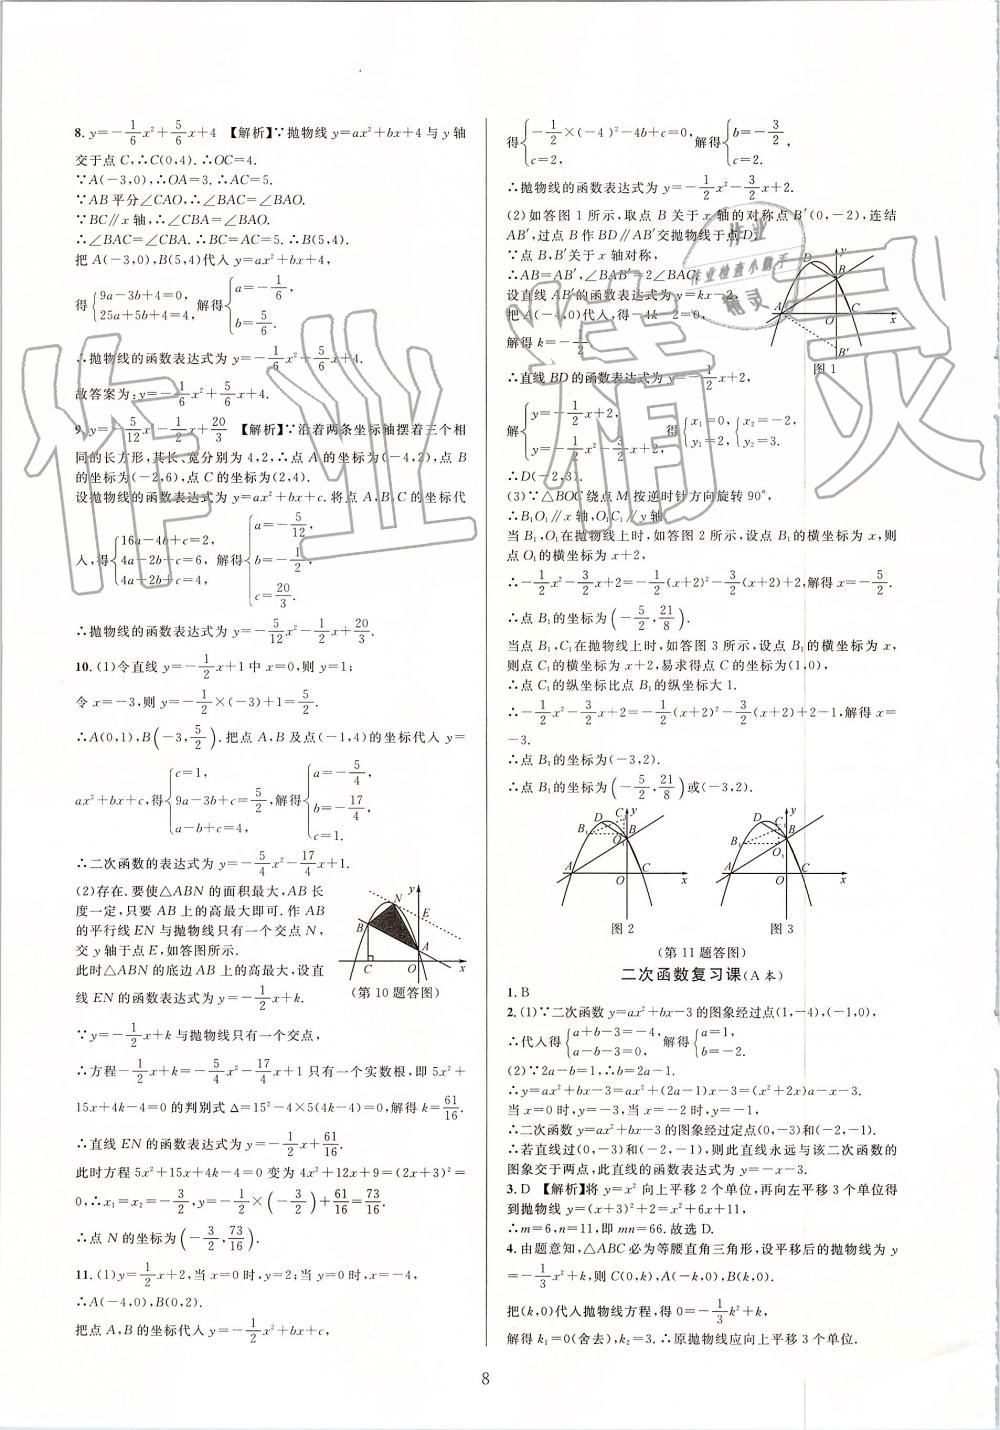 8. y=-1/6x²+5/6x+4 【解析】∵抛物线 y=ax²+bx+4 与 y 轴
交于点 C,∴C(0,4).∴OC=4.
∵A(-3,0),∴OA=3.∴AC=5.
∵AB 平分∠CAO,∴∠BAC=∠BAO.
∵BC∥x 轴,∴∠CBA=∠BAO.
∴∠BAC=∠CBA.∴BC=AC=5.∴B(5,4).
把 A(-3,0),B(5,4)代入 y=ax²+bx+4,
得{9a-3b+4=0, 25a+5b+4=4, 解得{a=-1/6, b=5/6.
∴抛物线的函数表达式为 y=-1/6x²+5/6x+4.
故答案为:y=-1/6x²+5/6x+4.
9. y=-5/12x²-1/2x+20/3 【解析】∵沿着两条坐标轴摆着三个相
同的长方形,其长、宽分别为 4,2,∴点 A 的坐标为(-4,2),点 B
的坐标为(-2,6),点 C 的坐标为(2,4).
设抛物线的函数表达式为 y=ax²+bx+c.将点 A,B,C 的坐标代
入,得{16a-4b+c=2, 4a-2b+c=6, 4a+2b+c=4, 解得{a=-5/12, b=-1/2, c=20/3.
∴抛物线的函数表达式为 y=-5/12x²-1/2x+20/3.
10. (1)令直线 y=-1/2x+1 中 x=0,则 y=1;
令 x=-3,则 y=-1/2×(-3)+1=5/2.
∴A(0,1),B(-3,5/2).把点 A,B 及点(-1,4)的坐标代入 y=
ax²+bx+c,得{c=1, 9a-3b+c=5/2, a-b+c=4, 解得{a=-5/4, b=-17/4, c=1.
∴二次函数的表达式为 y=-5/4x²-17/4x+1.
(2)存在.要使△ABN 的面积最大,AB 长
度一定,只要 AB 上的高最大即可.作 AB
的平行线 EN 与抛物线只有一个交点 N,
交 y 轴于点 E,如答图所示.
此时△ABN 的底边 AB 上的高最大,设直
线 EN 的函数表达式为 y=-1/2x+k.
N y E B A C O x
(第 10 题答图)
∵y=-1/2x+k 与抛物线只有一个交点,
∴方程-1/2x+k=-5/4x²-17/4x+1 只有一个实数根,即 5x²+
15x+4k-4=0 的判别式 Δ=15²-4×5(4k-4)=0,解得 k=61/16.
∴直线 EN 的函数表达式为 y=-1/2x+61/16.
此时方程 5x²+15x+4k-4=0 变为 4x²+12x+9=(2x+3)²=
0,∴x₁=x₂=-3/2,y=-1/2×(-3/2)+61/16=73/16.
∴点 N 的坐标为(-3/2,73/16).
11. (1)y=1/2x+2,当 x=0 时,y=2;当 y=0 时,x=-4,
∴A(-4,0),B(0,2).
把点 A,B 的坐标代入 y=-1/2x²+bx+c,
得{-1/2×(-4)²-4b+c=0, c=2, 解得{b=-3/2, c=2.
∴抛物线的函数表达式为 y=-1/2x²-3/2x+2.
(2)如答图 1 所示,取点 B 关于 x 轴的对称点 B′(0,-2),连结
AB′,过点 B 作 BD∥AB′交抛物线于点 D.
∵点 B,B′关于 x 轴对称,
∴AB=AB′,∠BAB′=2∠BAC.
设直线 AB′的函数表达式为 y=kx-2,
把 A(-4,0)代入,得-4k-2=0,
解得 k=-1/2.
D y B A O x B′
图 1
∴直线 BD 的函数表达式为 y=-1/2x+2,
解{y=-1/2x+2, y=-1/2x²-3/2x+2 得{x₁=0, y₁=2, {x₂=-2, y₂=3.
∴D(-2,3).
(3)∵△BOC 绕点 M 按逆时针方向旋转 90°,
∴B₁O₁∥x 轴,O₁C₁∥y 轴.
当 B₁,O₁在抛物线上时,如答图 2 所示,设点 B₁的横坐标为 x,则
点 O₁的横坐标为 x+2,
∴-1/2x²-3/2x+2=-1/2(x+2)²-3/2(x+2)+2,解得 x=-5/2.
∴点 B₁的坐标为(-5/2,21/8).
当点 B₁,C₁在抛物线上时,如答图 3 所示,设点 B₁的横坐标为 x,
则点 C₁的横坐标为 x+2,易求得点 C 的坐标为(1,0),
∴点 C₁的纵坐标比点 B₁的纵坐标大 1.
∴-1/2x²-3/2x+2=-1/2(x+2)²-3/2(x+2)+2-1,解得 x=
-3.
∴点 B₁的坐标为(-3,2).
∴点 B₁的坐标为(-5/2,21/8)或(-3,2).
D C₁ y B₁ B O₁ A O C x
图 2
D C₁ y B B₁ O₁ A O C x
图 3
(第 11 题答图)
二次函数复习课(A 本)
1. B
2. (1)∵二次函数 y=ax²+bx-3 的图象经过点(1,-4),(-1,0),
∴代入得{a+b-3=-4, a-b-3=0, 解得{a=1, b=-2.
(2)∵2a-b=1,∴b=2a-1.
∴y=ax²+bx-3=ax²+(2a-1)x-3=(x²+2x)a-x-3.
当 x=0 时,y=-3,当 x=-2 时,y=-1,
∴二次函数 y=ax²+bx-3 的图象经过定点(0,-3)和(-2,-1).
∴若直线过(0,-3)和(-2,-1),则此直线永远与该二次函数的
图象交于两点,此直线的函数表达式为 y=-x-3.
3. D 【解析】将 y=x² 向上平移 2 个单位,再向左平移 3 个单位得
到抛物线 y=(x+3)²+2=x²+6x+11,
∴m=6,n=11,即 mn=66.故选 D.
4. 由题意知,△ABC 必为等腰直角三角形,设平移后的抛物线为 y
=-1/3x²+k,则 C(0,k),A(-k,0),B(k,0).
把(k,0)代入抛物线方程,得 0=-1/3k²+k,
解得 k₁=0(舍去),k₂=3.∴原抛物线应向上平移 3 个单位.
8
作业精灵
作业
作业检查小助手
精灵